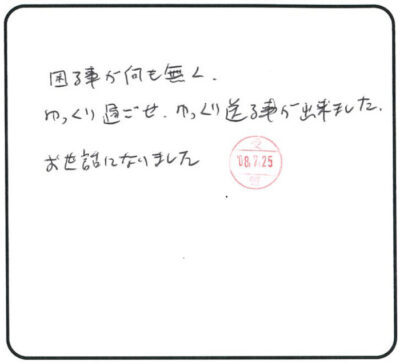 困る事が何も無く、
ゆっくり過ごせ、ゆっくり送る事が出来ました。
お世話になりました
'08.7.25